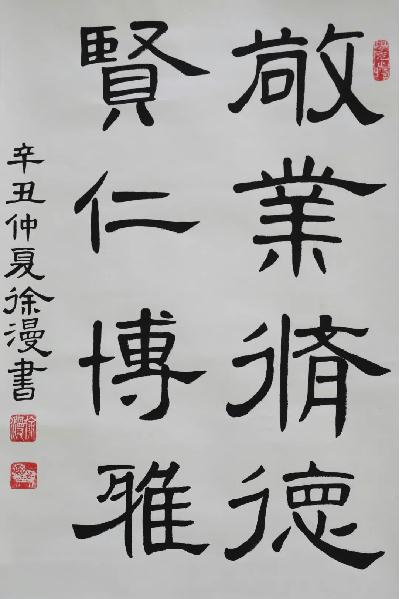 敬業脩德
賢仁博雅
辛丑仲夏徐漫書